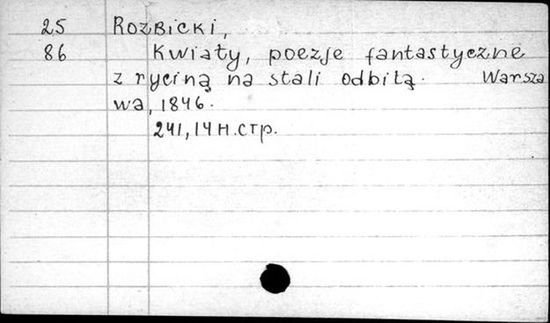 25 Rozbicki,
86 Kwiaty, poezje fantastyczne
z ryciną na stali odbitą. Warsza
wa, 1846.
241, 14 н. стр.